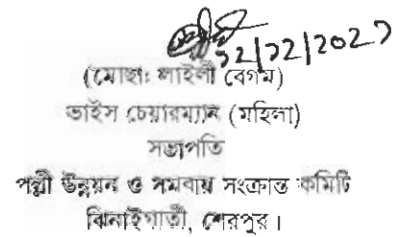 ১২/১২/২০২১
(মোছা: লাইলী বেগম)
ভাইস চেয়ারম্যান (মহিলা)
সভাপতি
পল্লী উন্নয়ন ও সমবায় সংক্রান্ত কমিটি
ঝিনাইগাতী, শেরপুর।